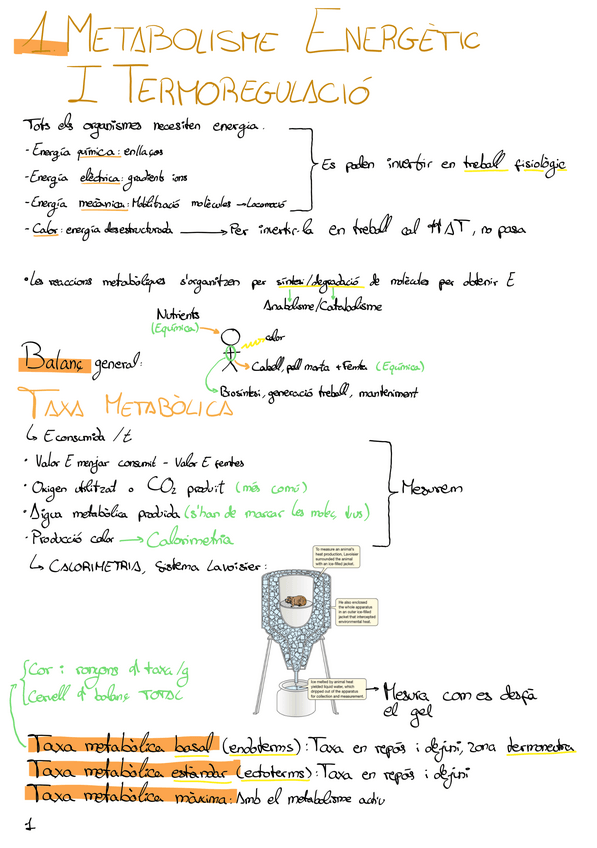 1. METABOLISME ENERGÈTIC
I TERMOREGULACIÓ
Tots els organismes necesiten energia.
- Energía química: enllaços
- Energía elèctrica: gradients ions
- Energía mecànica: Mobilització molècules → Locomoció
Es poden invertir en treball fisiològic
- Calor: energía desestructurada → Per invertir-la en treball cal ↑↑ΔT, no pasa
• Les reaccions metabòliques s'organitzen per síntesi/degradació de molècules per obtenir E
Anabolisme/Catabolisme
Nutrients
(Equímica)
calor
Cabell, pell morta + Femta (Equímica)
Biosíntesi, generació treball, manteniment
Balanç general:
TAXA METABÒLICA
↳ E consumida /t
• Valor E menjar consumit - Valor E femtes
• Oxigen utilitzat o CO2 produit (més comú)
• Aigua metabòlica produida (s'han de marcar les molec,
• Producció calor → Calorimetria
Mesurem
↳ CALORIMETRIA, Sistema Lavoisier:
To measure an animal's
heat production, Lavoisier
surrounded the animal
with an ice-filled jacket.
He also enclosed
the whole apparatus
in an outer ice-filled
jacket that intercepted
environmental heat.
Ice melted by animal heat
yielded liquid water, which
dripped out of the apparatus
for collection and measurement.
→ Mesura com es desfà
el gel
Cor i ronyons taxa/g
Cervell balanç TOTAL
Taxa metabòlica basal (endoterms): Taxa en repòs i dejuni, zona termoneutra
Taxa metabòlica estàndar (ectoterms): Taxa en repòs i dejuni
Taxa metabòlica màxima: Amb el metabolisme actiu
1